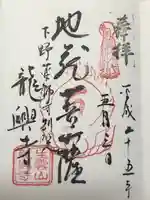 奉拝
平成二十五年
五月三日
地蔵菩薩
下野薬師寺別院
龍興寺